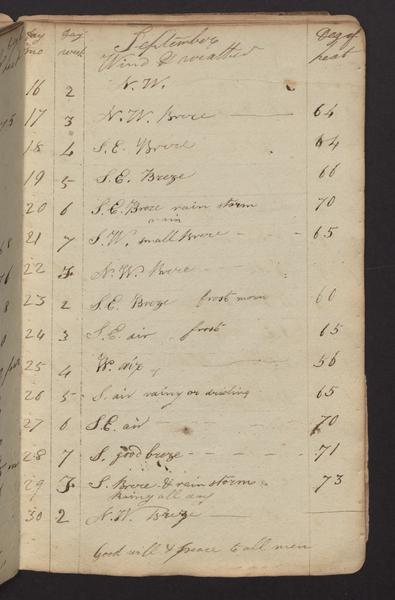 Day mo Day week September Day of heat
Wind & weather
16 2 N. W.
17 3 N. W. Breze 64
18 4 S. E. Breze 64
19 5 S. E. Breze 66
20 6 S. E. Breze rain storm 70
rain
21 7 S. W. small Breze 65
22 N. W. Breze
23 2 S. E. Breze frost morn 60
24 3 S. E. air frost 65
25 4 W. air 56
26 5 S. air rainy or drisling 65
27 6 S. E. air 70
28 7 S. good breze 71
29 S. Breze & rain storm 73
Rainy all day
30 2 N. W. Breze
Good will & peace to all men